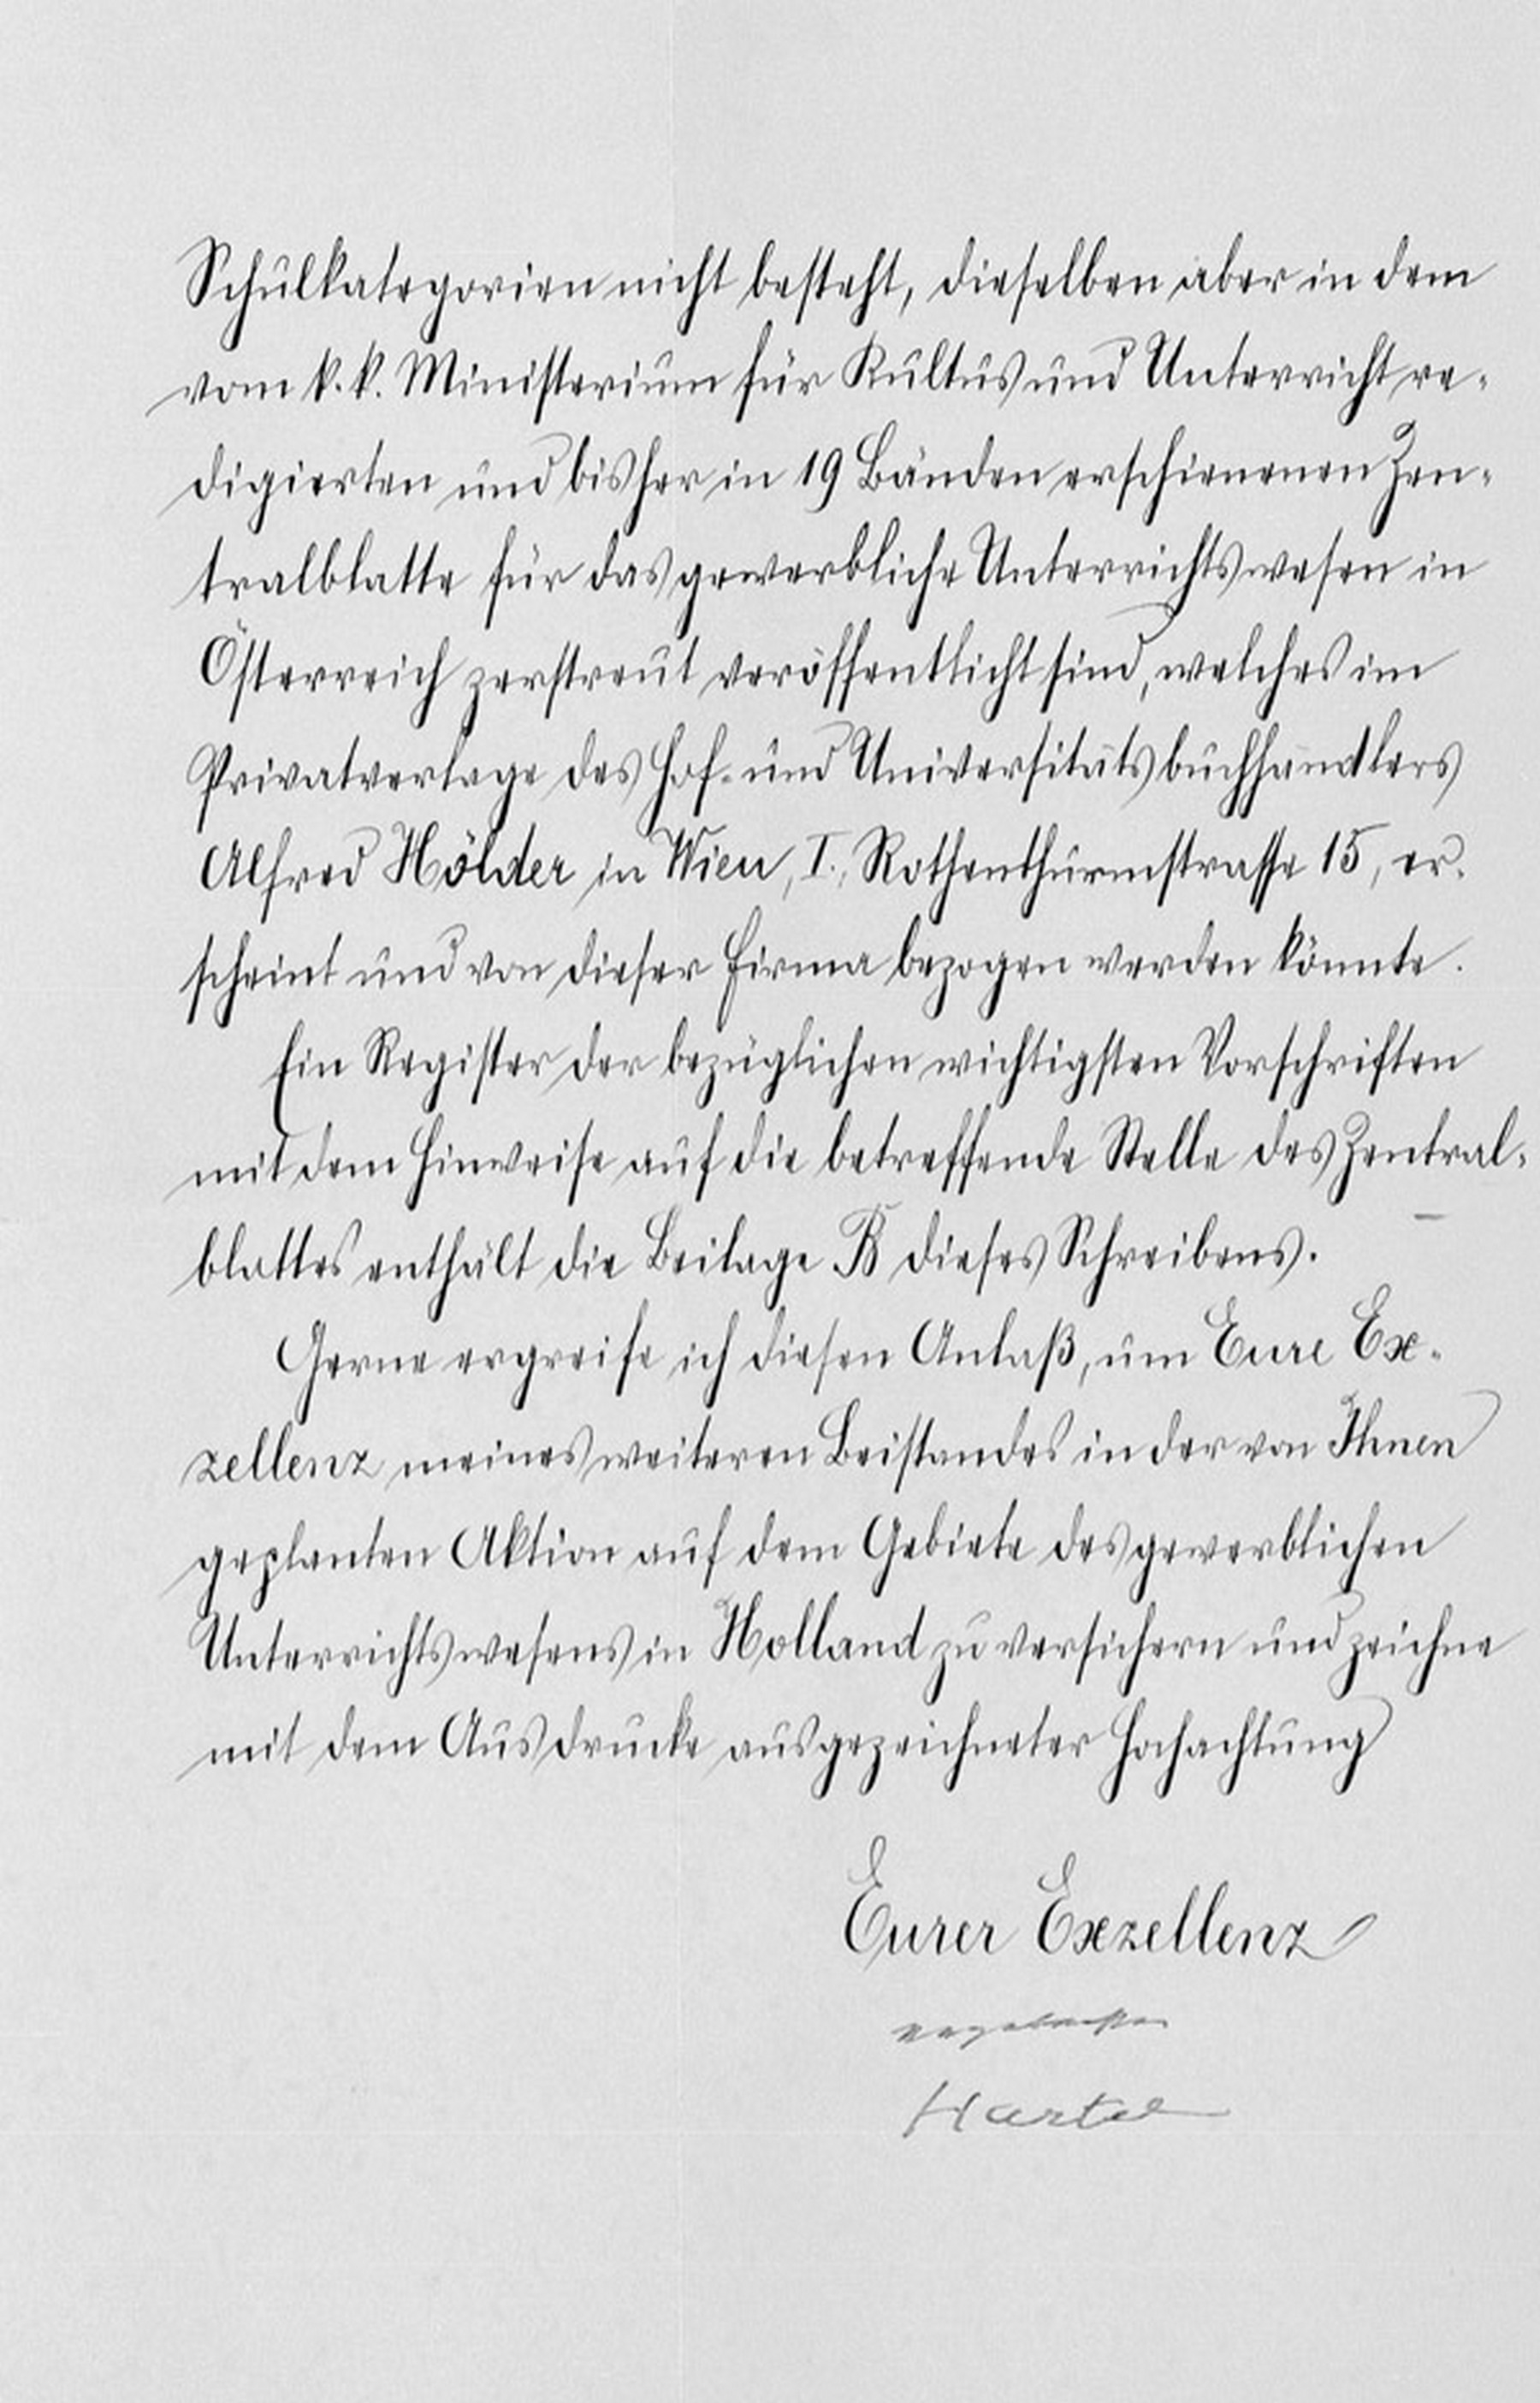 Schulkategorien nicht besteht, dieselben aber in dem
vom k. k. Ministerium für Kultus und Unterricht re-
digierten und bisher in 19 Bänden erschienenen Zen-
tralblatte für das gewerbliche Unterrichtswesen in
Österreich zerstreut veröffentlicht sind, welches im
Privatverlage des Hof- und Universitätsbuchhandlers
Alfred Hölder in Wien, I., Rothenthurmstrasse 15, er-
scheint und von dieser Firma bezogen werden könnte.
Ein Register der bezüglichen wichtigsten Vorschriften
mit dem Hinweise auf die betreffende Stelle des Zentral-
blattes enthält die Beilage B dieses Schreibens.
Gerne ergreife ich diesen Anlaß, um Eure Ex-
zellenz meines weiteren Beistandes in der von Ihnen
geplanten Aktion auf dem Gebiete des gewerblichen
Unterrichtswesens in Holland zu versichern und zeichne
mit dem Ausdrucke ausgezeichneter Hochachtung
Eurer Exzellenz
Hartel